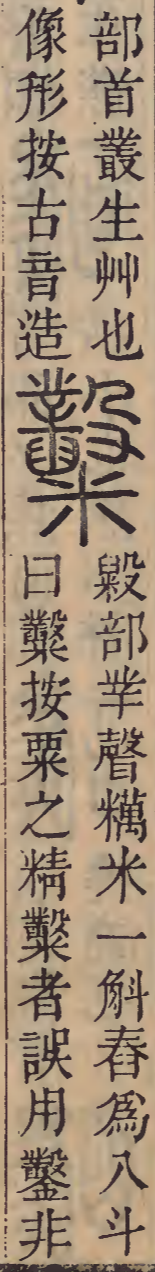 部首叢生艸也
像形按古音造
糳
毇部丵聲糲米一斛舂爲八斗
曰糳按粟之精糳者誤用鑿非